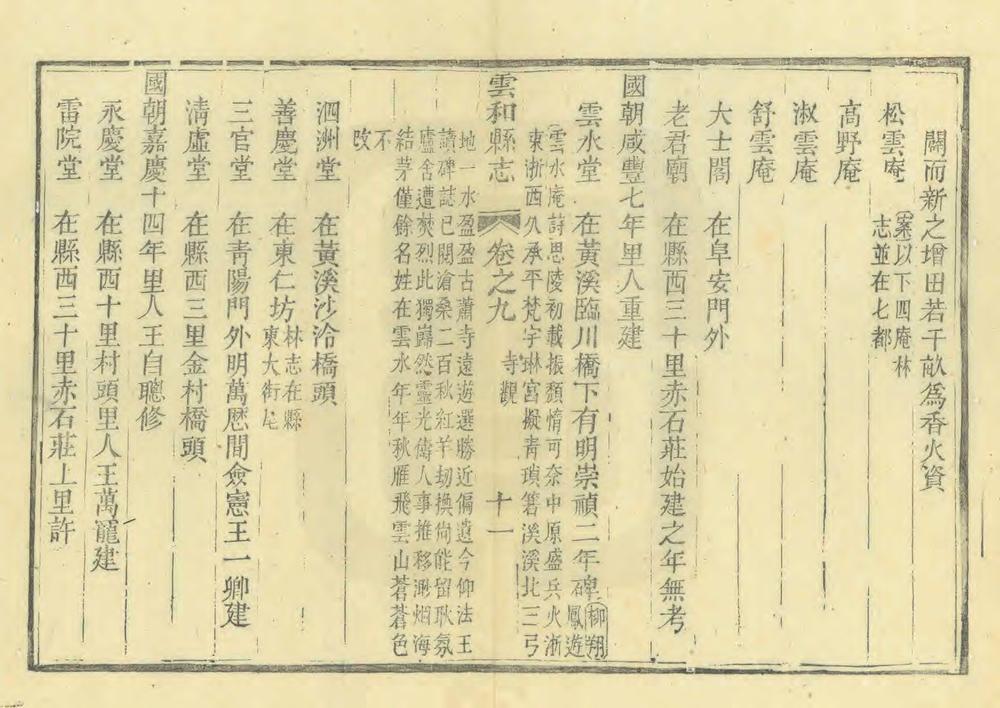 闢而新之增田若干畝爲香火資
松雲庵 案以下四庵林
志並在七都
高野庵
淑雲庵
舒雲庵
大士閣 在阜安門外
老君廟 在縣西三十里赤石莊始建之年無考
國朝咸豐七年里人重建
雲水堂 在黃溪臨川橋下有明崇禎二年碑 柳翔
鳳遊
雲水庵詩思陵初載振頹惰可奈中原盛兵火浙
東浙西久承平梵宇琳宮擬靑瑣箬溪溪北三弓
雲和縣志 卷之九 寺觀 十一
地一水盈盈古蕭寺遠遊選勝近偏遺今仰法王
讀碑誌已閱滄桑二百秋紅羊刼換尙能留耿氛
廬舍遭焚烈此獨巋然靈光儔人事推移渺烟海
結茅僅餘名姓在雲水年年秋雁飛雲山蒼蒼色
不
改
泗洲堂 在黃溪沙洽橋頭
善慶堂 在東仁坊 林志在縣
東大街尾
三官堂 在靑陽門外明萬厯間僉憲王一卿建
淸虛堂 在縣西三里金村橋頭
國朝嘉慶十四年里人王自聰修
永慶堂 在縣西十里村頭里人王萬寵建
雷院堂 在縣西三十里赤石莊上里許